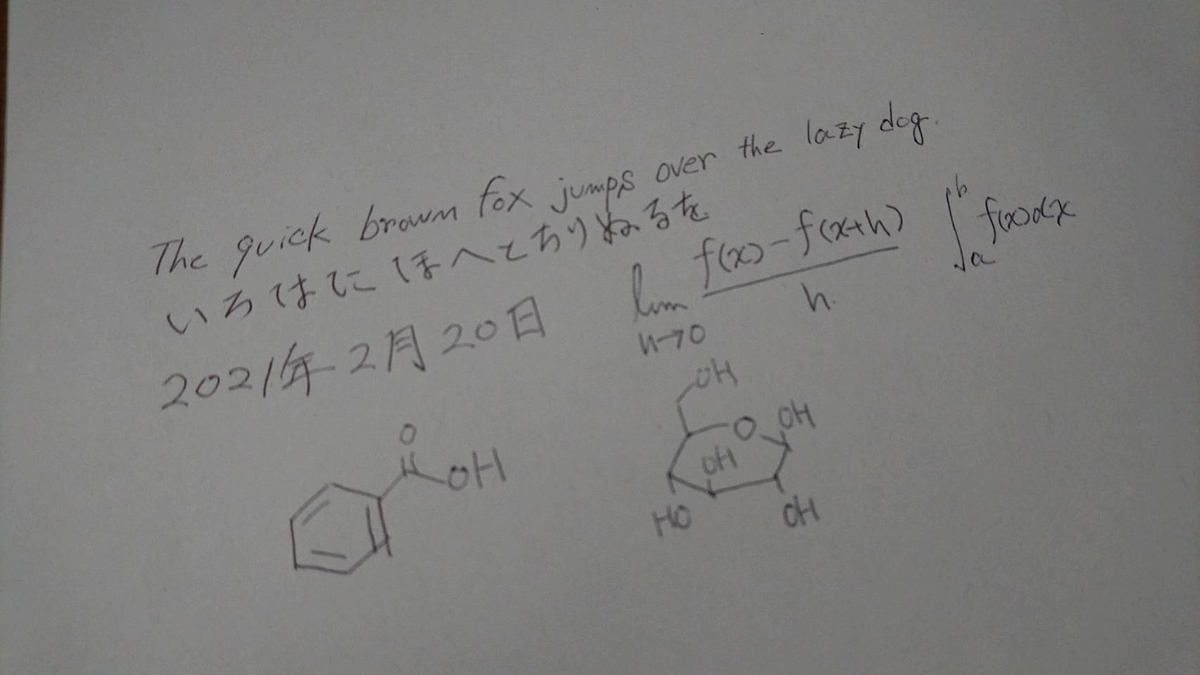 The quick brown fox jumps over the lazy dog.
いろはにほへとちりぬるを
2021年2月20日
lim h→0 f(x)-f(x+h) / h
∫_a^b f(x)dx
O
OH
OH
O OH
OH
HO OH